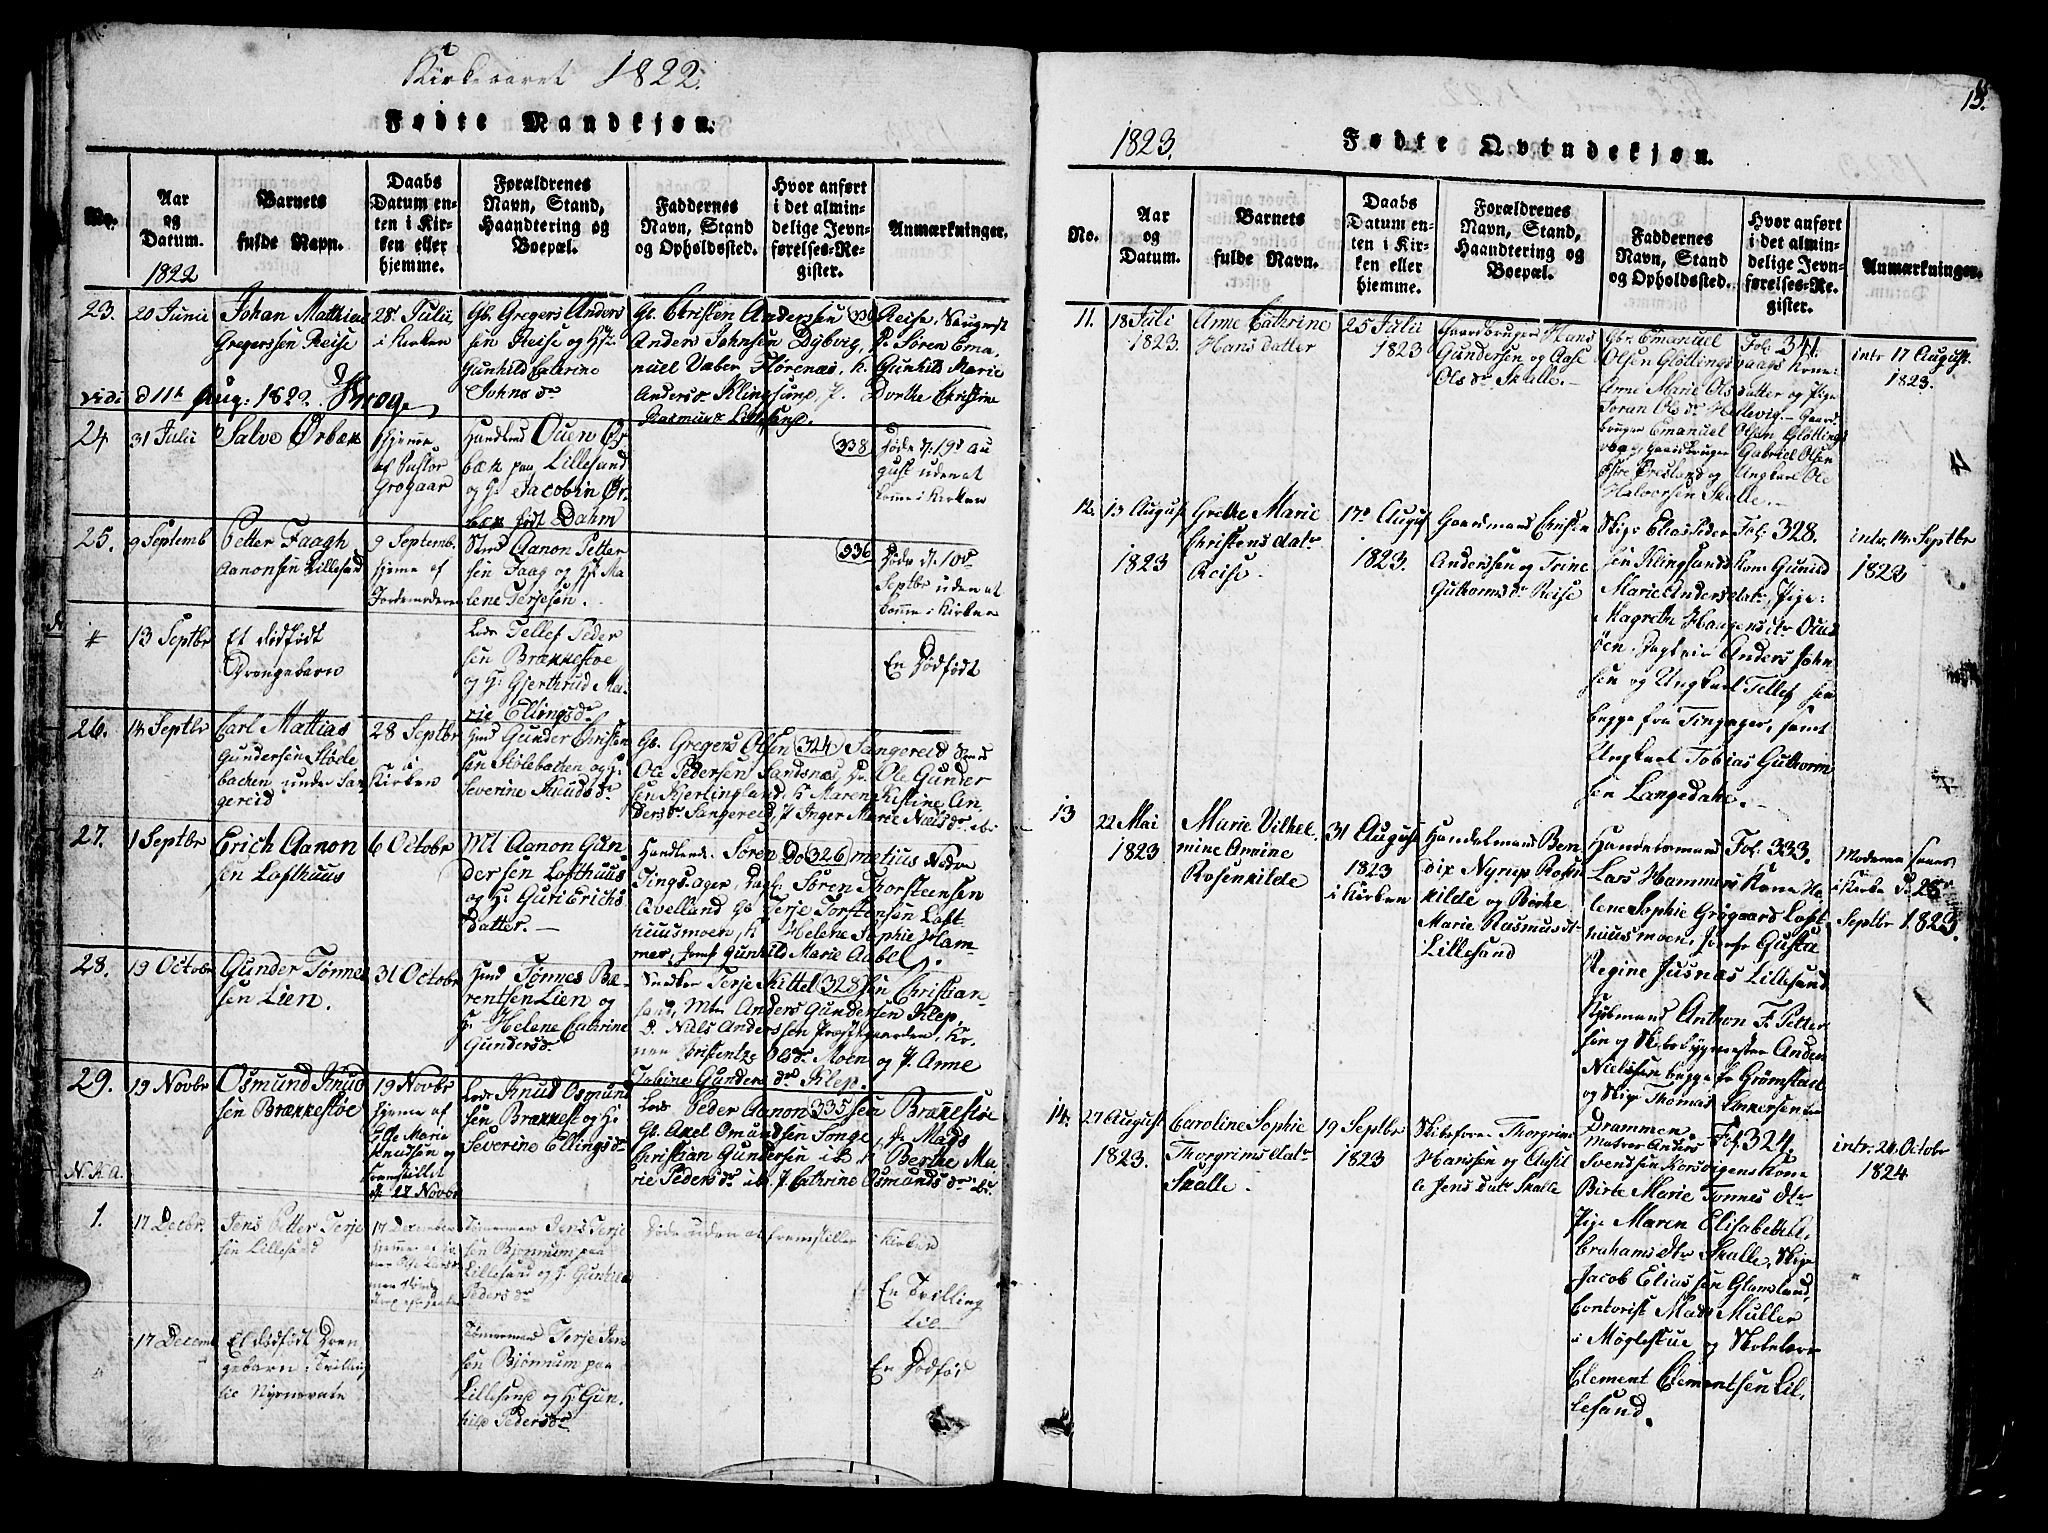 Kirkeaaret 1822.
Fødte Mandkjøn.
No.
Aar og Datum.
1822
Barnets fulde Navn.
Daabs Datum enten i Kirken eller hjemme.
Forældrenes Navn, Stand, Haandtering og Boepæl.
Faddernes Navn, Stand og Opholdssted.
Hvor anført i det almindelige Jevnførelses-Register.
Anmærkninger.
23.
20 Junii
Johan Mathias
Gregerssen Reise
28 Julii
i Kirken
Gb. Gregers Anders
sen Reise og
Gunhild Cathrine
Johns dr
Gb. Christen Andersen
Anders Johnsen Dybvig,
nuel Vaber Hørenæs, K.
Anders dr Klingsund, P.
Rasmus Lillesand.
330
Reise,
P. Søren Ema
Gunhild Marie
Dorthe Christine
vidi d 11te Aug: 1822. Krog
24
31 Julii
Salve Ørbæk
Hjemme
af Pastor
Grogaar
Handlend Ouen Ør
bæk paa Lillesand
og H. Jacobin Ør
bæk født Dahm
338
døde d. 19d Au
gust uden at
komme i Kirken
25.
9 Septemb
Petter Faagh
Aanonsen Lillesand
9 Septemb.
hjeme af
Jordemoderen
Aanon Petter
sen Faag og H. Ma
lene Terjesen.
336
Døde d. 10d
Septbr uden at
komme i Kirken
13 Septbr
Et dødfødt
Drengebarn
Lods Tellef Peder
sen Brækkestøe
og H. Gjerthrud Ma
rie Ellings dr
En Dødfødt
26.
14 Septbr
Carl Mattias
Gundersen Støle
backen under San
gereid
28 Septbr
i
Kirken
Huusmd Gunder Christen
sen Stølebakken og H.
Severine Knuds dr
Gb. Gregers Olsen 324 Sangereid
Ole Pedersen Sandsnæs, Dr. Ole Gunder
sen Kjerlingland, K. Maren Kistine An
ders dr Sangereid, P. Inger Marie Niels dr ibi
27.
1 Septbr
Erich Aanon
sen Lofthuus
6 Octobr
Mt Aanon Gun
dersen Lofthuus
og H. Guri Erichs
datter.
Handlende Søren Do 326 metius Nedre
Tingsager, Søren Thorsteensen
Qvelland Gb. Terje Torstensen Loft
huusmoen, K. Helene Sophie Ham
mer, Jomf Gunhild Marie Aabel.
28.
19 Octobr
Gunder Tønnes
sen Lien.
31 Octobr
Huusmd Tønnes Be
rentsen Lien og
H. Helene Cathrine
Gunders dr
Snedker Terje Kittel 328 sen Christian
sand, Mtr. Anders Gundersen Klep,
D. Niels Anderssen Præstgaarden, Ko
nen Christentz Ols dr Moen og P. Anne
Tobine Gunders dr Klep.
29.
19 Novbr
Osmund Knud
sen Brækkestøe
19 Novbr
hjeme af
Else Marie
Knudsen og
fremstillet
d. 27 Novbr
Lods Knud Osmund
sen Brækkest og H.
Severine Ellings dr
Lods Peder Aanon 335 sen Brækkestøe
Gb. Axel Omundsen Songe, Mads
Christian Gundersen ib. K. Berthe Ma
rie Peders dr ib. P. Cathrine Osmunds dr ib.
N. Aa.
1.
17 Decbr.
Jens Petter Terje
sen Lillesand
17 December
hjemme
Tømermand Jens Terje
sen Bjønnum paa
Lillesand og H. Gunhild
Peders dr
Døde uden at fremstilles i Kirken
En Tvilling
17 Decemb
Et dødfødt Dren
gebarn Tvilling
Tømermand Terje Jen
sen Bjønnum paa
Lillesand og H. Gun
hild Peders dr
En Dødfød
1823.
Fødte Qvindekjøn.
15.
No.
Aar og Datum.
Barnets fulde Navn.
Daabs Datum enten i Kirken eller hjemme.
Forældrenes Navn, Stand, Haandtering og Boepæl.
Faddernes Navn, Stand og Opholdssted.
Hvor anført i det almindelige Jevnførelses-Register.
Anmærkninger.
11.
18 Juli
1823.
Anne Cathrine
Hans datter
25 Julii
1823
Gaardbruger Hans
Gundersen og Aase
Ols dr Skalle.
Gbr. Emanuel
Olsen Glöttingsvaags Kone
Anne Marie Olsdatter og Pige
Joran Ols dr Hellevig. Gaard
bruger Emanuel Olsen Glöttings
vaag, Gaardbruger Gabriel Olsen
Østre Presland og Ungkarl Ole
Halvorsen Skalle.
Fol. 341.
intr 17 August
1823.
12.
13 August
1823
Grethe Marie
Christens datr
Reise.
17d August
1823.
Gaardmand Christen
Anderssen og Trine
Guthorms dr Reise
Skips. Elias Peder
sen Klingsunds Kone Gunild
Marie Anders datr, Pige
Magrethe Haagens dtr Ouus
öen, Anders John
sen og Ungkarl Tellef sen
begge fra Tingsager, samt
Ungkarl Tobias Guthorm
sen Langedahl.
Fol. 328.
intr. 14 Septbr
1823
13
22 Mai
1823
Marie Vilhel
mine Amine
Rosenkilde
31 August
1823
i Kirken
Handelsmand Ben
dix Nyrup Rosen
kilde og Birthe
Marie Rasmusdr
Lillesand
Handelsmand
Lars Hammers Kone He
lene Sophie Grøgaard Loft
huusmoen, Jomfr Gusta
Regine Jusnæs Lillesand
Kjøbmand Anthon F. Petter
sen og Skibsbygmester Anders
Nielssen begge fr Grømstad
og Skips. Thomas Emersen fra
Drammen
Fol. 333.
Moderen
i Kirke d. 28
Septbr 1823.
14.
27 August
1823.
Caroline Sophie
Thorgrims datr
Skalle
19 Septbr
1823
Skibsfører Thorgrim
Hanssen og Aasil
le Jens datr Skalle
Matros Anders
Svendsen Korsvigens Kone
Birte Marie Tønnes dtr
Pige Maren Elisabeth A
brahams dtr Skalle, Skips.
Jacob Eliassen Glamsland,
Contorist Mads Müller
i Møglestue og Skibslære
Clement Clemetsen Lil
lesand.
Fol. 324.
intr. 24 Octobr
1824